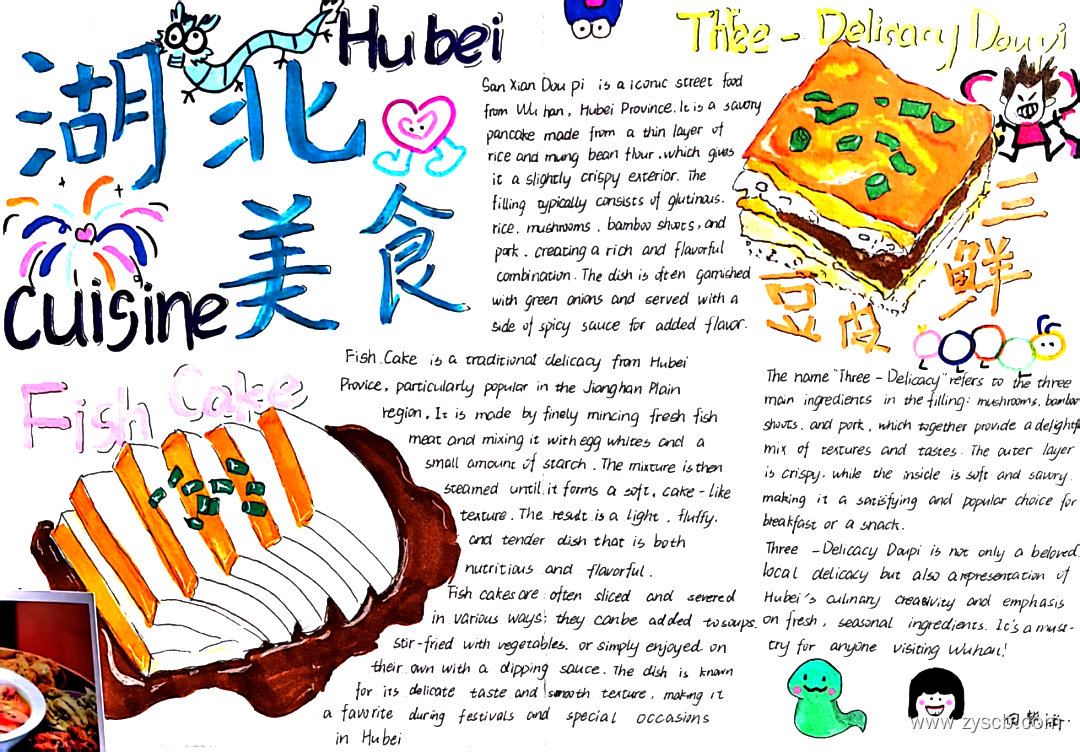 Hubei
湖北
美食
cuisine
Three - Delicacy Doupi
San Xian Dou pi is a iconic street food
from Wuhan, Hubei Province. It is a savory
pancake made from a thin layer of
rice and mung bean flour, which gives
it a slightly crispy exterior. The
filling typically consists of glutinous.
rice, mushrooms, bamboo shoots, and
pork, creating a rich and flavorful
combination. The dish is often garnished
with green onions and served with a
side of spicy sauce for added flavor.
三鲜
豆皮
Fish Cake
Fish Cake is a traditional delicacy from Hubei
Provice, particularly popular in the Jianghan Plain
region. It is made by finely mincing fresh fish
meat and mixing it with egg whites and a
small amount of starch. The mixture is then
steamed until it forms a soft, cake-like
texture. The result is a light, fluffy,
and tender dish that is both
nutritious and flavorful.
Fish cakes are often sliced and severed
in various ways: they can be added to soups.
stir-fried with vegetables. or simply enjoyed on
their own with a dipping sauce. The dish is known
for its delicate taste and smooth texture, making it
a favorite during festivals and special occasions
in Hubei
The name "Three - Delicacy" refers to the three
main ingredients in the filling: mushrooms, bamboo
shoots, and pork, which together provide a delightf
mix of textures and tastes. The outer layer
is crispy, while the inside is soft and savory.
making it a satisfying and popular choice for
breakfast or a snack.
Three - Delicacy Doupi is not only a beloved
local delicacy but also a representation of
Hubei's culinary creativity and emphasis
on fresh, seasonal ingredients. It's a must-
try for anyone visiting Wuhan!
www.zyscb.com